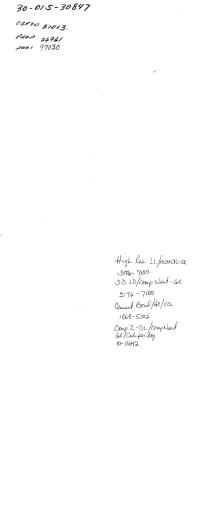 30-015-30847
OGRID 21013
PROP 26961
POOL 97030
High Res LL/ -GR
3196-7100
3-D LD/Comp Neut-GR
3196-7100
Cement Bond/GR/CCL
1069-5302
Comp Z-DL/CompNeut
GR/Caliper log